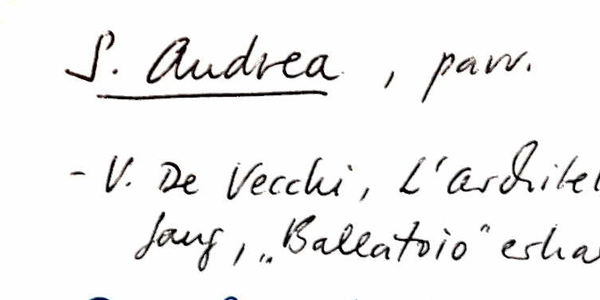 S. Andrea , parr.
- V. De Vecchi, L'archite
„Ballatoio" erha